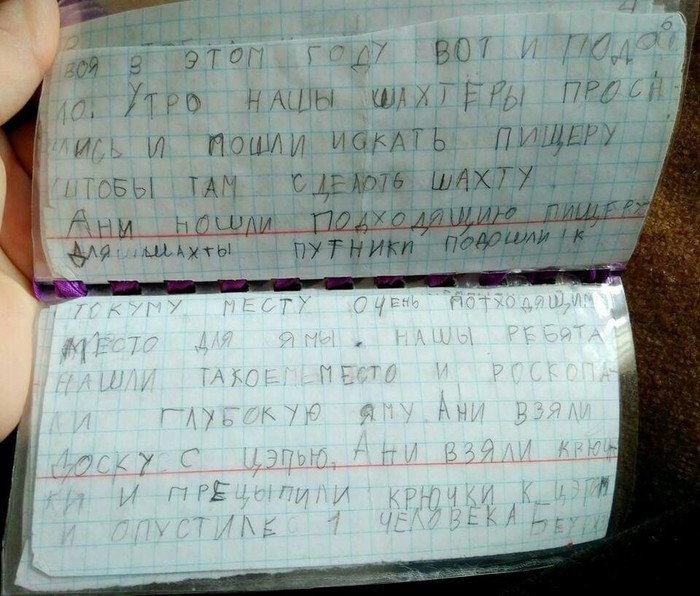 ВОЯ В ЭТОМ ГОДУ ВОТ И ПОДО
ЛО. УТРО НАШЫ ШАХТЁРЫ ПРОСН
ЛИСЬ И ПОШЛИ ИСКАТЬ ПИЩЕРУ
ШТОБЫ ТАМ СДЕЛОТЬ ШАХТУ.
АНИ НОШЛИ ПОДХОДЯЩИЮ ПИЩЕРУ
ДЛЯ ШАХТЫ ПУТНИКИ ПОДОШЛИ К
ТОКУМУ МЕСТУ ОЧЕНЬ ПОТХОДЯЩИМ
МЕСТО ДЛЯ ЯМЫ. НАШЫ РЕБЯТА
НАШЛИ ТАКОЕ МЕСТО И РОСКОПА-
ЛИ ГЛУБОКУЮ ЯМУ. АНИ ВЗЯЛИ
ДОСКУ С ЦЭПЬЮ. АНИ ВЗЯЛИ КРЮЧ
КИ И ПРЕЦЫПИЛИ КРЮЧКИ К ЦЭПЯМ
И ОПУСТИЛЕ 1 ЧЕЛОВЕКА